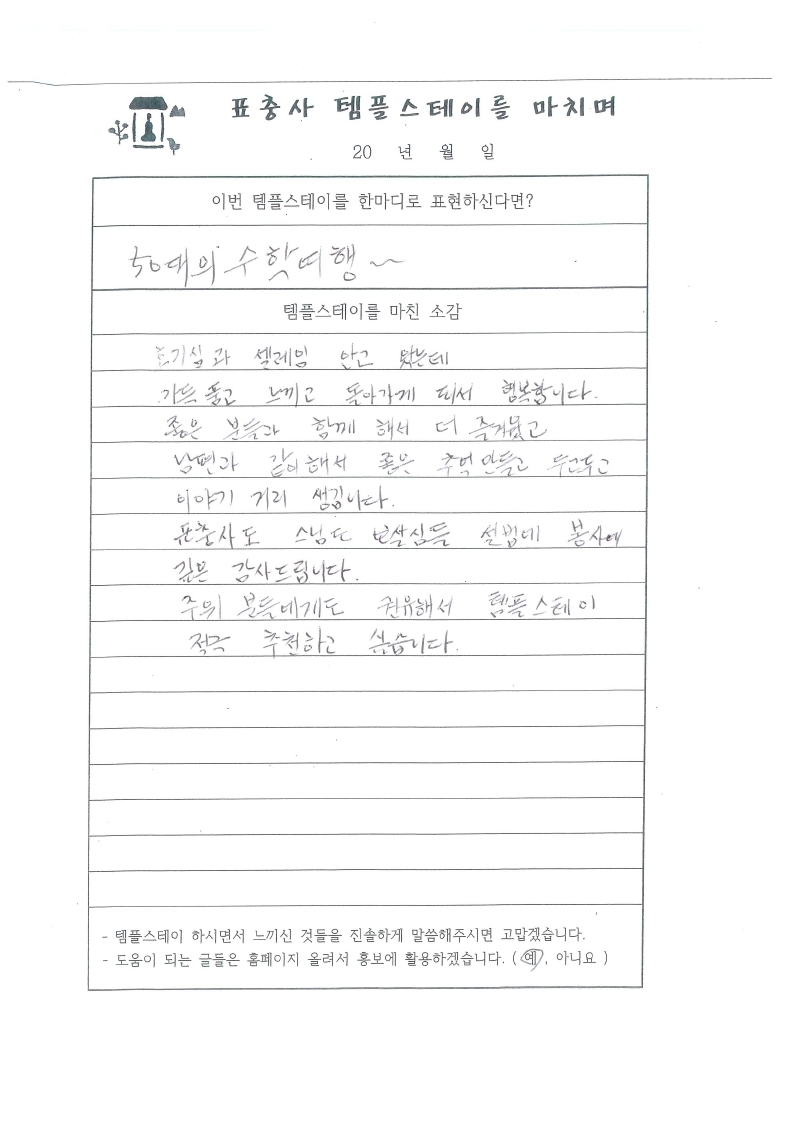 표충사 템플스테이를 마치며
20 년 월 일
이번 템플스테이를 한마디로 표현하신다면?
50대의 수학여행~
템플스테이를 마친 소감
호기심과 셀레임 안고 왔는데
가득 품고 느끼고 돌아가게 되서 행복합니다.
좋은 분들과 함께 해서 더 즐거웠고
남편과 같이해서 좋은 추억 만들고 두고두고
이야기 거리 생깁니다.
표충사도 스님도 보살심들 설법에 봉사에
깊은 감사드립니다.
주위 분들에게도 권유해서 템플스테이
적극 추천하고 싶습니다.
- 템플스테이 하시면서 느끼신 것들을 진솔하게 말씀해주시면 고맙겠습니다.
- 도움이 되는 글들은 홈페이지 올려서 홍보에 활용하겠습니다. ( 예 , 아니요 )